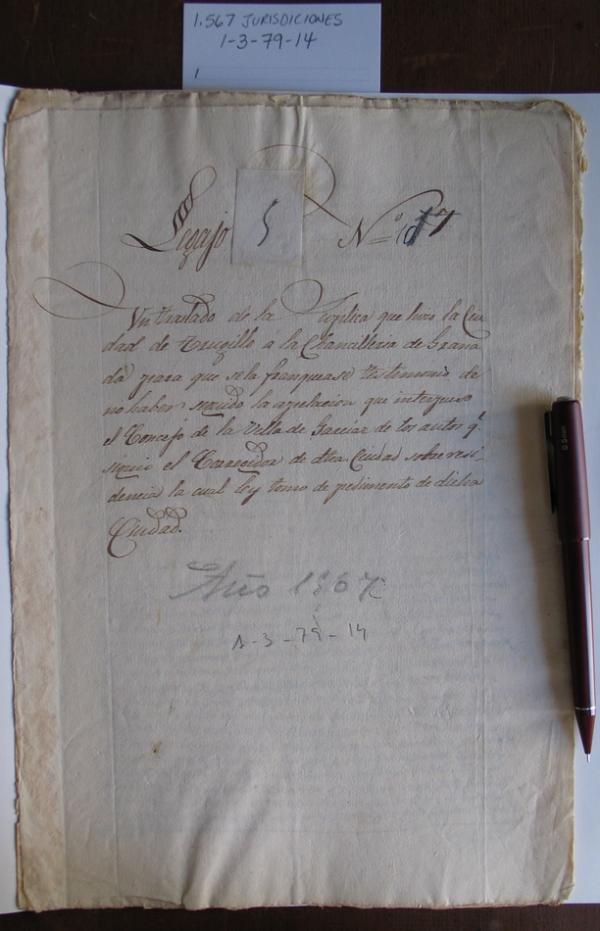 1.567 JURISDICIONES
1-3-79-14
1
Legajo 5 Nº 17
Un traslado de la Suplica que hizo la Ciu
dad de Truxillo a la Chancilleria de Grana
da para que se la franquease testimonio de
no haber seguido la apelacion que interpuso
el Concejo de la Villa de Garciaz de los autos q.
siguio el Corregidor de dha. Ciudad sobre resi-
dencia la cual ley tomo de pedimento de dicha
Ciudad.
Año 1567
A-3-79-14
0.5mm